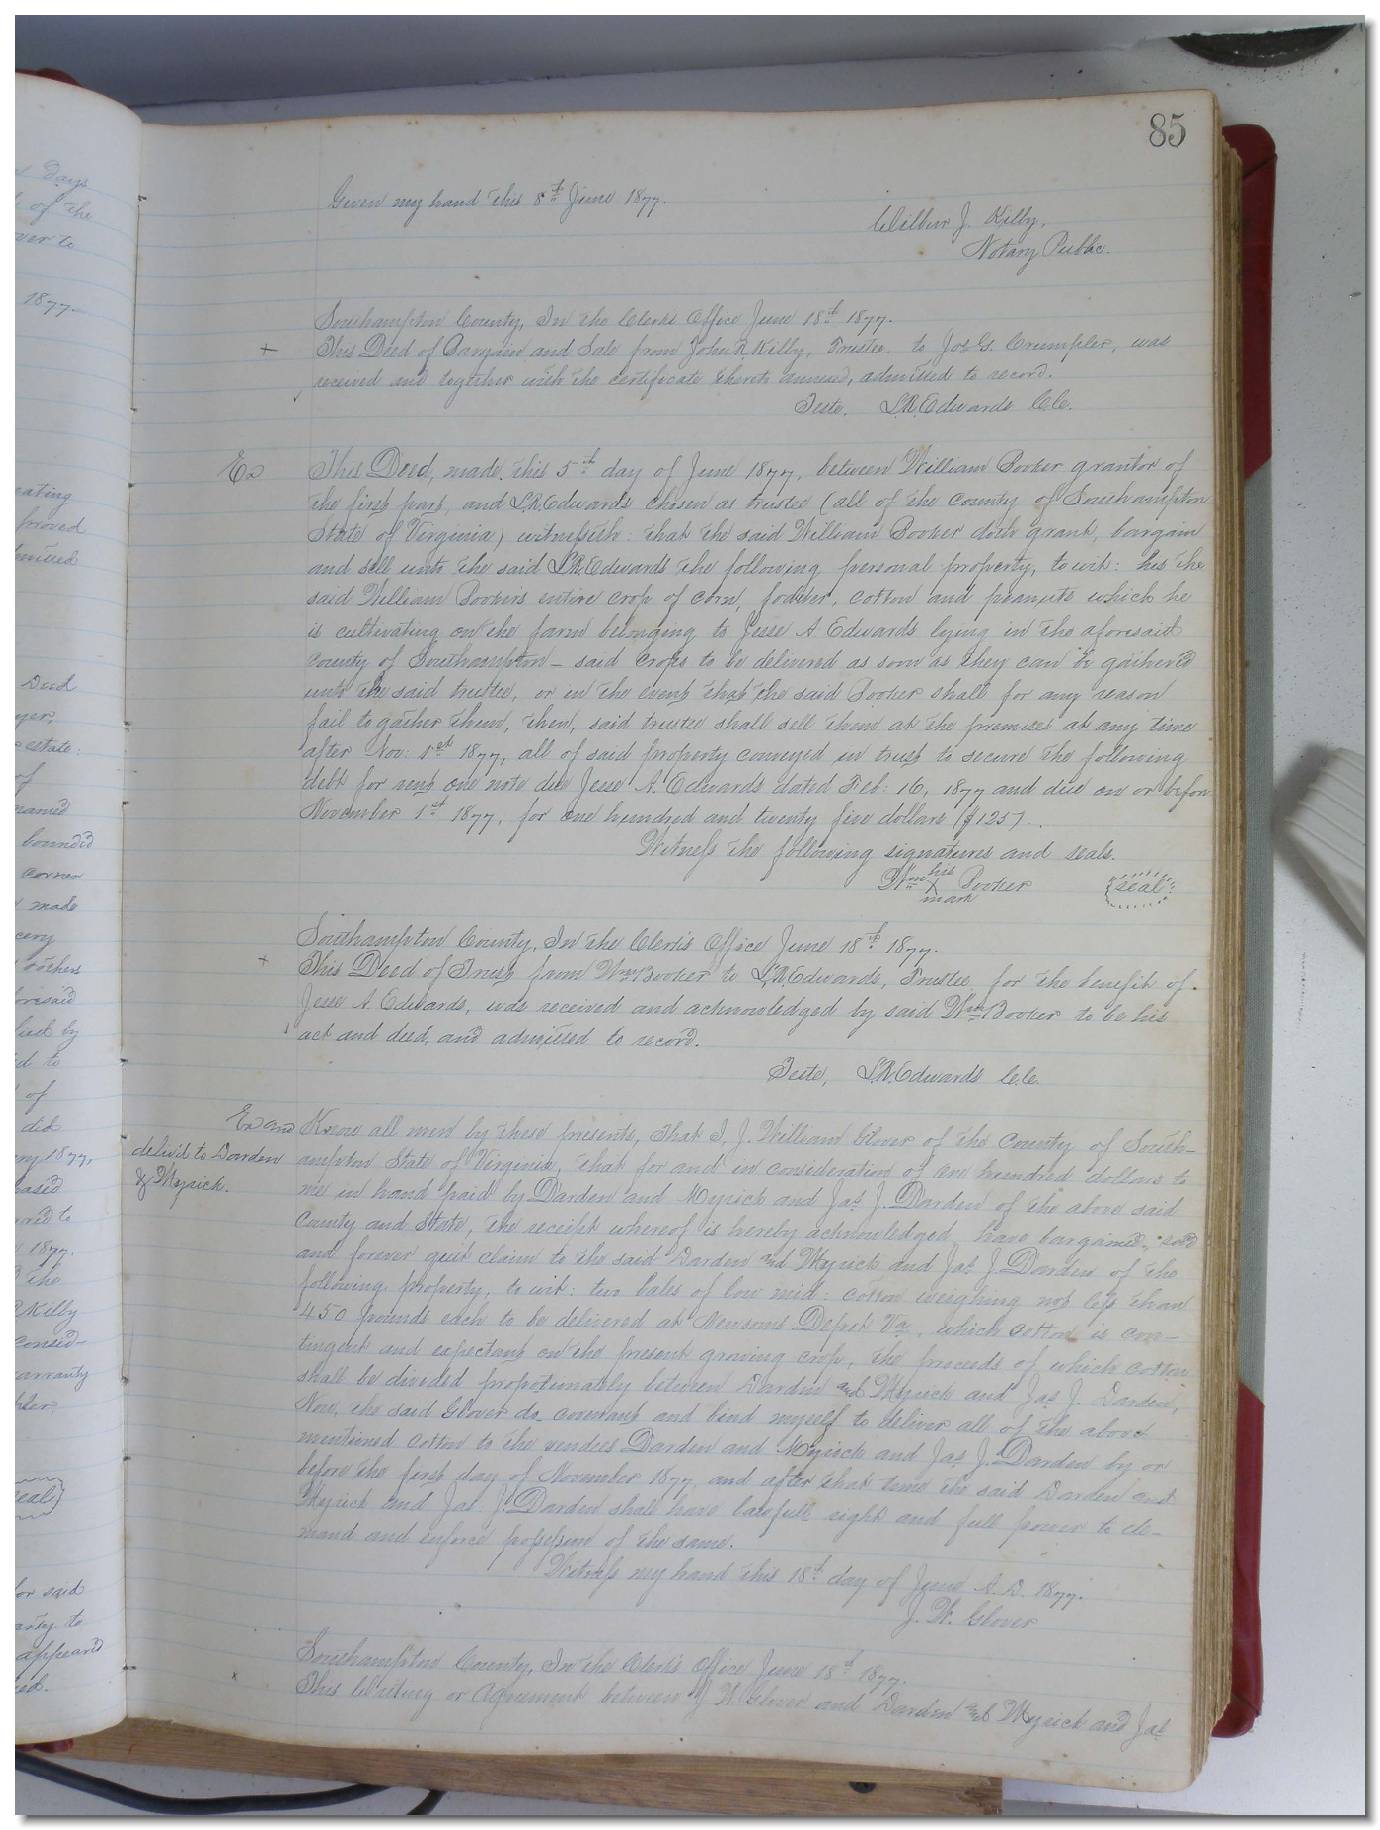 Days
of the
ver to
1877.
eating
proved
mitted
Deed
yer,
estate:
of
named
bounded
corner
made
cery
others
foresaid
lied by
d to
of
did
ry 1877,
eased
ored to
1877.
the
Kilby
consid-
arranty
pler
seal
for said
arty to
appeared
ed.
85
Given my hand this 8th June 1877.
Wilbur J. Kilby,
Notary Public.
Southampton County, In the Clerks Office June 18th 1877.
+ This Deed of Bargain and Sale from John R. Kilby, Trustee to Jos. G. Crumpler, was
received and together with the certificate thereto annexed, admitted to record.
Teste, L.R. Edwards C.C.
Ex This Deed, made this 5th day of June 1877, between William Booker grantor of
the first part, and L.R. Edwards chosen as trustee (all of the County of Southampton
State of Virginia) witnesseth: that the said William Booker doth grant, bargain
and sell unto the said L.R. Edwards the following personal property, to wit: his the
said William Bookers entire crop of corn, fodder, cotton and peanuts which he
is cultivating on the farm belonging to Jesse A Edwards lying in the aforesaid
County of Southampton – said crops to be delivered as soon as they can be gathered
unto the said trustee, or in the event that the said Booker shall for any reason
fail to gather them, then, said trustee shall sell them at the premises at any time
after Nov: 1st 1877, all of said property conveyed in trust to secure the following
debt for rent one note due Jesse A. Edwards dated Feb: 16, 1877 and due on or before
November 1st 1877, for one hundred and twenty five dollars ($125).
Witness the following signatures and seals.
Wm his X mark Booker (seal)
Southampton County, In the Clerk's Office June 18th 1877.
+ This Deed of Trust from Wm Booker to L.R. Edwards, Trustee, for the benefit of
Jesse A Edwards, was received and acknowledged by said Wm Booker to be his
act and deed, and admitted to record.
Teste, L.R. Edwards C.C.
Ex and
deliv'd to Darden
& Myrick.
Know all men by these presents, That I, J. William Glover of the County of South-
ampton State of Virginia, that for and in consideration of one hundred dollars to
me in hand paid by Darden and Myrick and Jas. J. Darden of the above said
County and State, the receipt whereof is hereby acknowledged, have bargained, sold
and forever quit claim to the said Darden and Myrick and Jas. J. Darden of the
following property, to wit: two bales of low mid: cotton weighing not less than
450 pounds each to be delivered at Newsoms Depot Va, which cotton is con-
tingent and expectant on the present growing crop, the proceeds of which cotton
shall be divided proportionately between Darden and Myrick and Jas. J. Darden,
Now, the said Glover do covenant and bind myself to deliver all of the above
mentioned cotton to the vendees Darden and Myrick and Jas. J. Darden by or
before the first day of November 1877, and after that time the said Darden and
Myrick and Jas. J. Darden shall have lawfull right and full power to de-
mand and enforce possession of the same.
Witness my hand this 18th day of June A.D. 1877.
J. W. Glover
Southampton County, In the Clerk's Office June 18th 1877.
x This Writing or Agreement between J W. Glover and Darden and Myrick and Jas